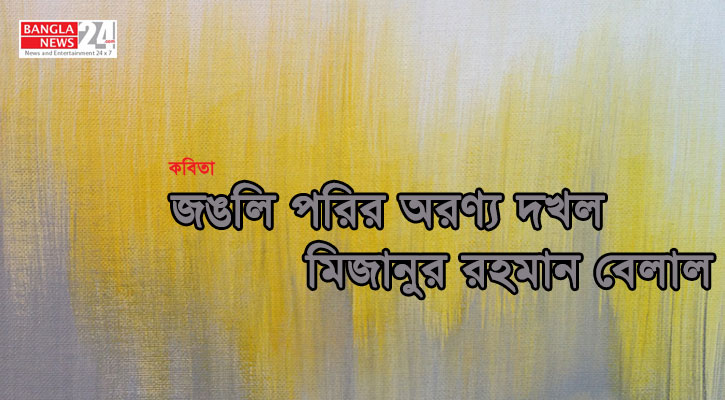 BANGLA
NEWS 24.com
News and Entertainment 24 x 7
কবিতা
জঙলি পরির অরণ্য দখল
মিজানুর রহমান বেলাল